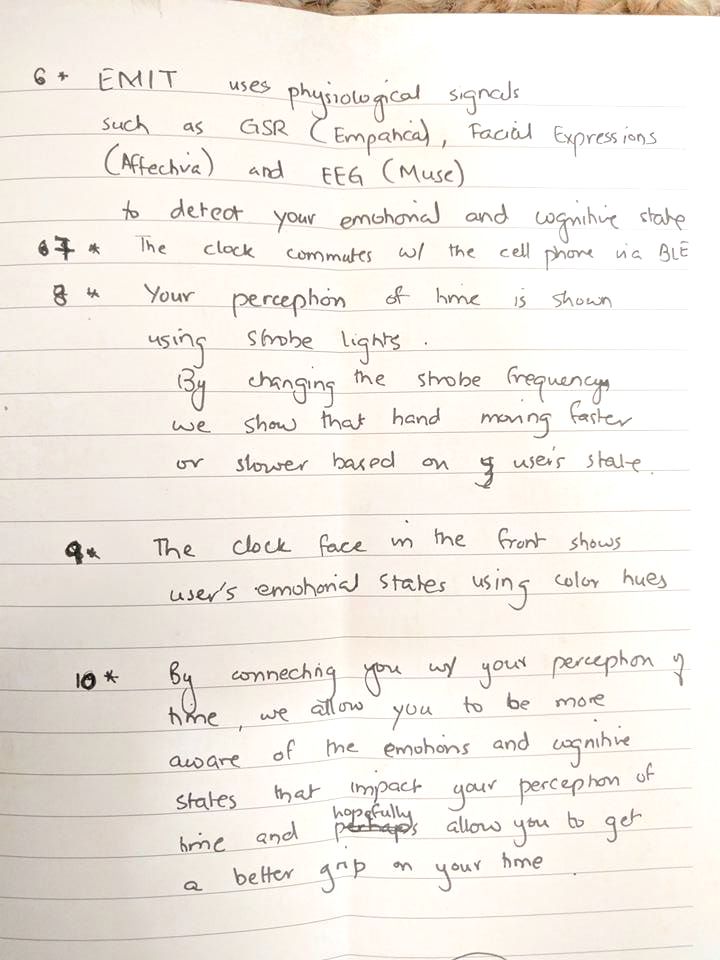 6 * EMIT uses physiological signals
such as GSR (Empatica), Facial Expressions
(Affectiva) and EEG (Muse)
to detect your emotional and cognitive state
7 * The clock commutes w/ the cell phone via BLE
8 * Your perception of time is shown
using strobe lights.
By changing the strobe frequency
we show that hand moving faster
or slower based on user's state.
9 * The clock face in the front shows
user's emotional states using color hues
10 * By connecting you w/ your perception of
time, we allow you to be more
aware of the emotions and cognitive
states that impact your perception of
hopefully
time and perhaps allow you to get
a better grip on your time.